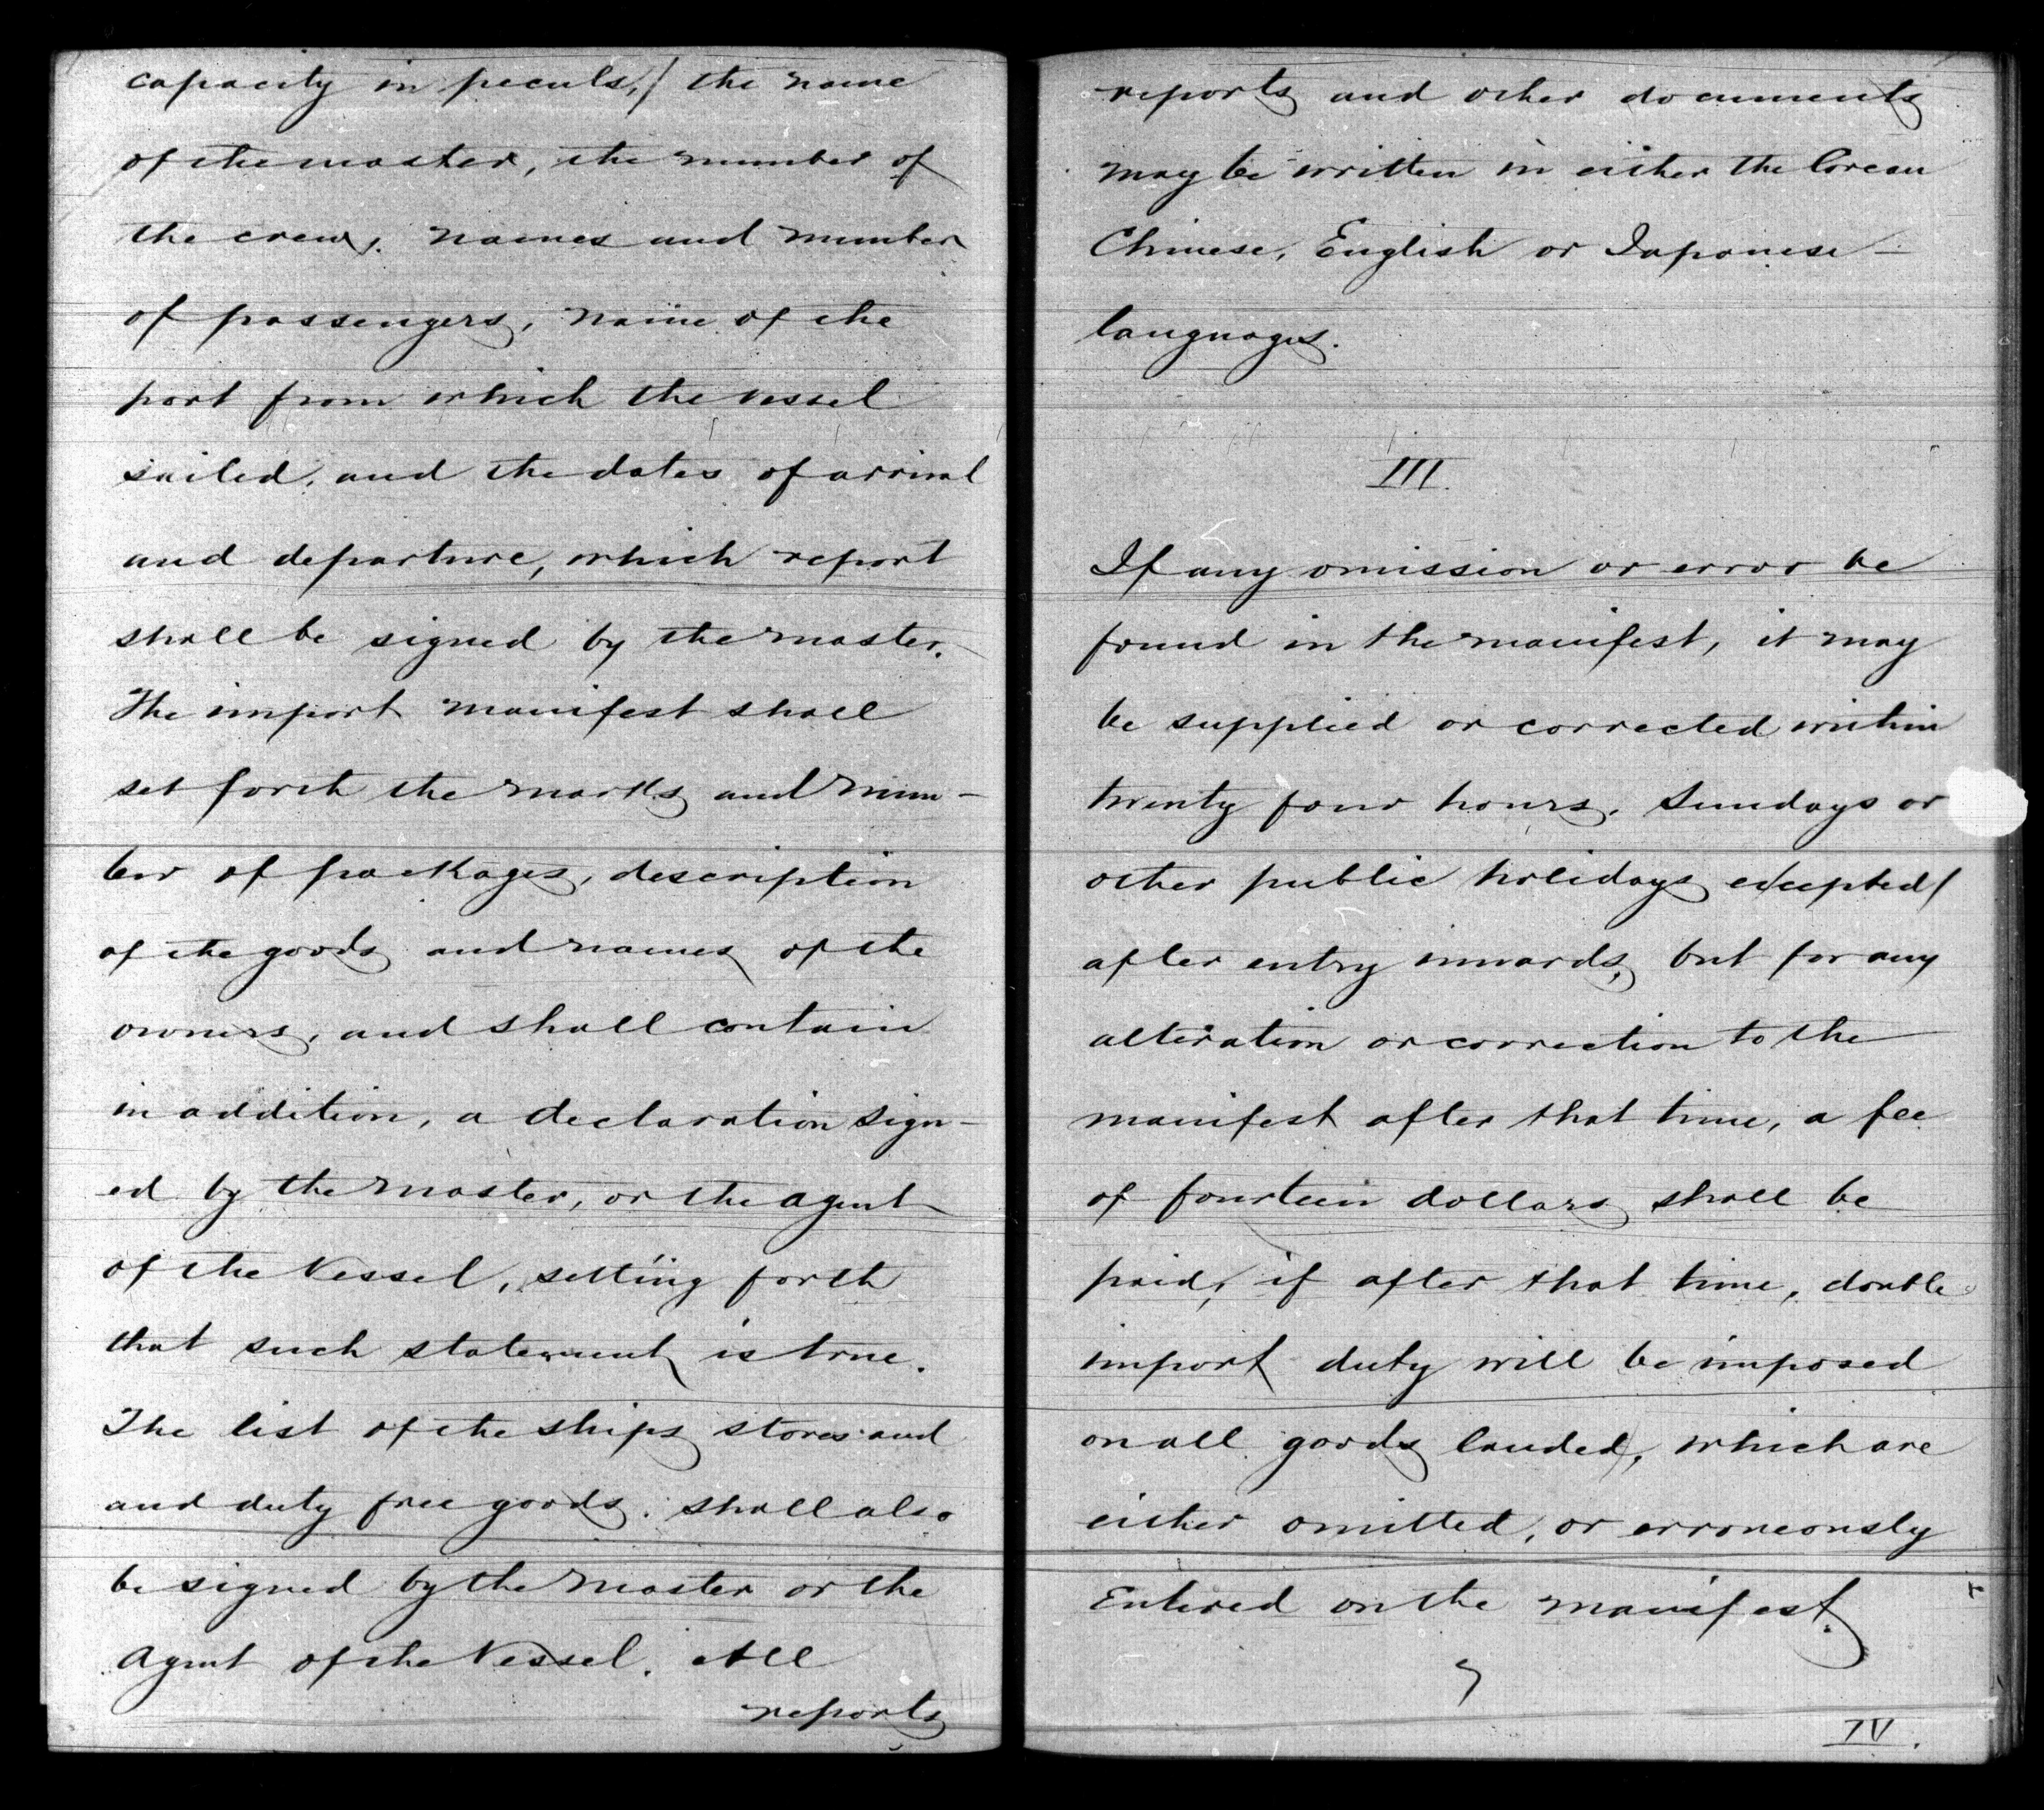 capacity in peculs,) the name
of the master, the number of
the crew, names and number
of passengers, name of the
port from which the vessel
sailed, and the dates of arrival
and departure, which report
shall be signed by the master.
The import manifest shall
set forth the marks and num-
ber of packages, description
of the goods and names of the
owners, and shall contain
in addition, a declaration sign-
ed by the master, or the agent
of the Vessel, setting forth
that such statement is true.
The list of the ships stores and
and duty free goods. shall also
be signed by the master or the
Agent of the Vessel. All
reports
reports and other documents
may be written in either the Corean
Chinese, English or Japanese -
languages.
III.
If any omission or error be
found in the manifest, it may
be supplied or corrected within
twenty four hours. Sundays or
other public holidays excepted)
after entry inwards, but for any
alteration or correction to the
manifest after that time, a fee
of fourteen dollars shall be
paid, if after that time, double
import duty will be imposed
on all goods landed, which are
either omitted, or erroneously
Entered on the manifest.
IV.